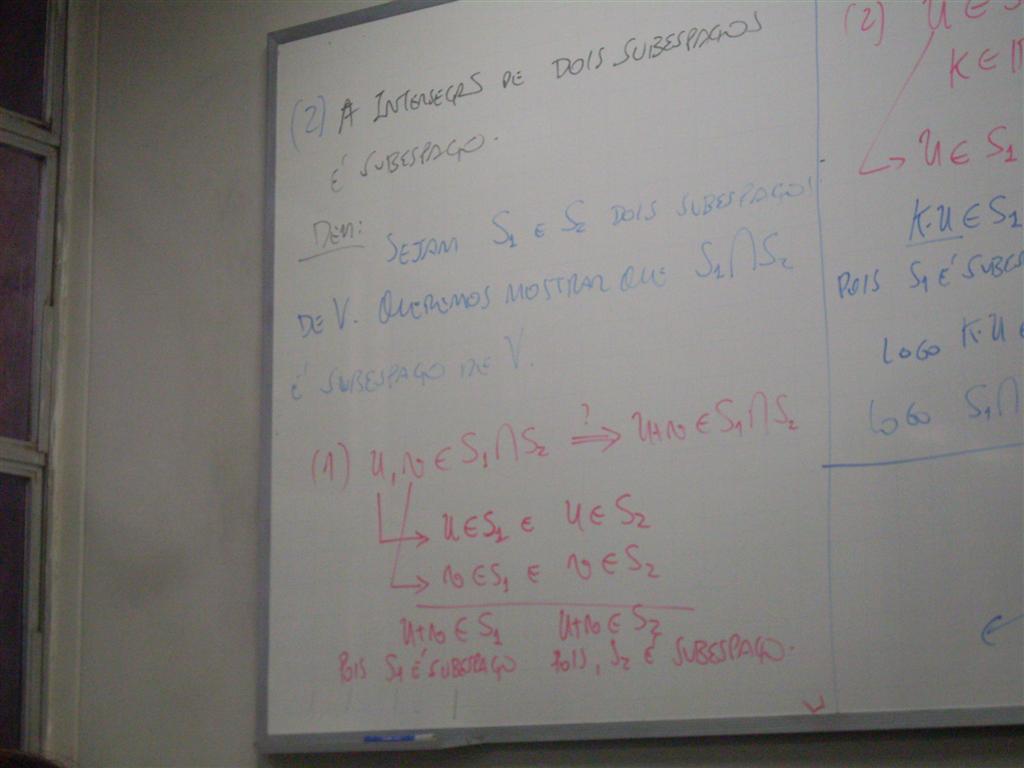 (2) A INTERSEÇÃO DE DOIS SUBESPAÇOS
É SUBESPAÇO.
DEM: SEJAM S1 E S2 DOIS SUBESPAÇOS
DE V. QUEREMOS MOSTRAR QUE S1∩S2
É SUBESPAÇO DE V.
(1) u, v ∈ S1∩S2 ?⇒ u+v ∈ S1∩S2
→ u ∈ S1 E u ∈ S2
→ v ∈ S1 E v ∈ S2
u+v ∈ S1 u+v ∈ S2
POIS S1 É SUBESPAÇO POIS, S2 É SUBESPAÇO.
(2) u ∈ S
K ∈
→ u ∈ S1
K·u ∈ S1
POIS S1 É SUBES
LOGO K·u ∈
LOGO S1∩